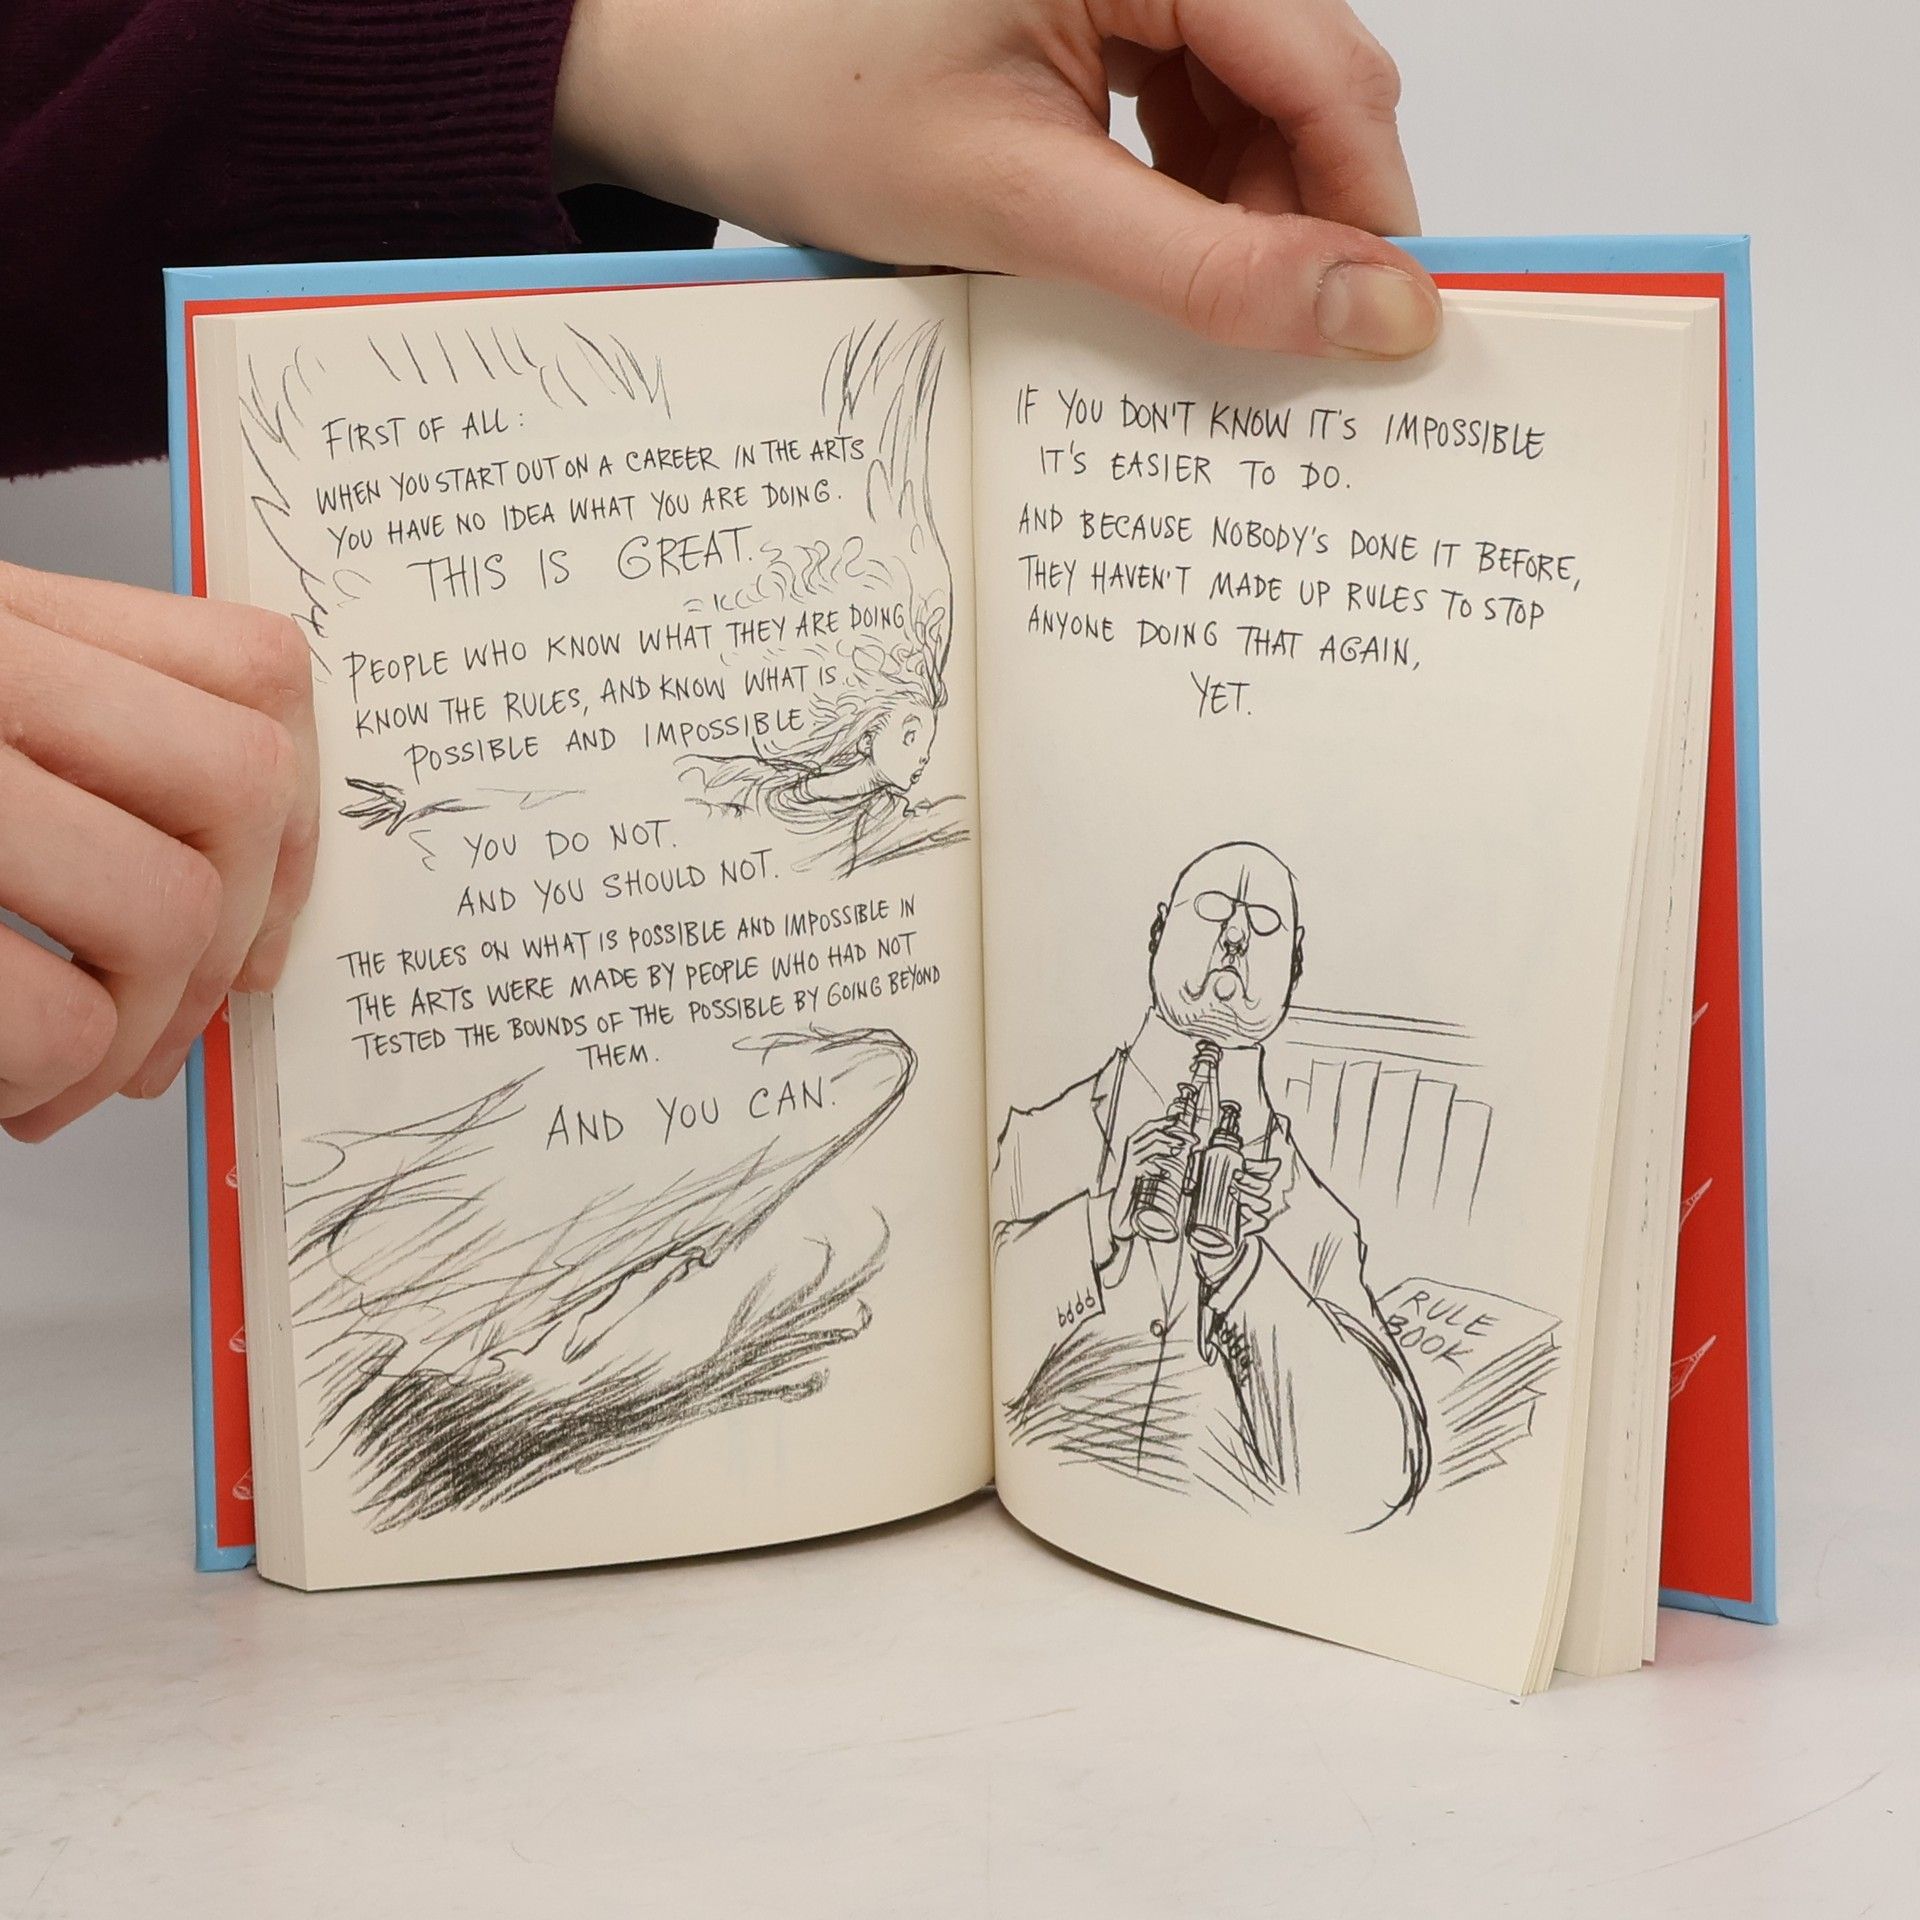 FIRST OF ALL:
WHEN YOU START OUT ON A CAREER IN THE ARTS
YOU HAVE NO IDEA WHAT YOU ARE DOING.
THIS IS GREAT.
PEOPLE WHO KNOW WHAT THEY ARE DOING
KNOW THE RULES, AND KNOW WHAT IS
POSSIBLE AND IMPOSSIBLE.
YOU DO NOT.
AND YOU SHOULD NOT.
THE RULES ON WHAT IS POSSIBLE AND IMPOSSIBLE IN
THE ARTS WERE MADE BY PEOPLE WHO HAD NOT
TESTED THE BOUNDS OF THE POSSIBLE BY GOING BEYOND
THEM.
AND YOU CAN.
IF YOU DON'T KNOW IT'S IMPOSSIBLE
IT'S EASIER TO DO.
AND BECAUSE NOBODY'S DONE IT BEFORE,
THEY HAVEN'T MADE UP RULES TO STOP
ANYONE DOING THAT AGAIN,
YET.
RULE
BOOK